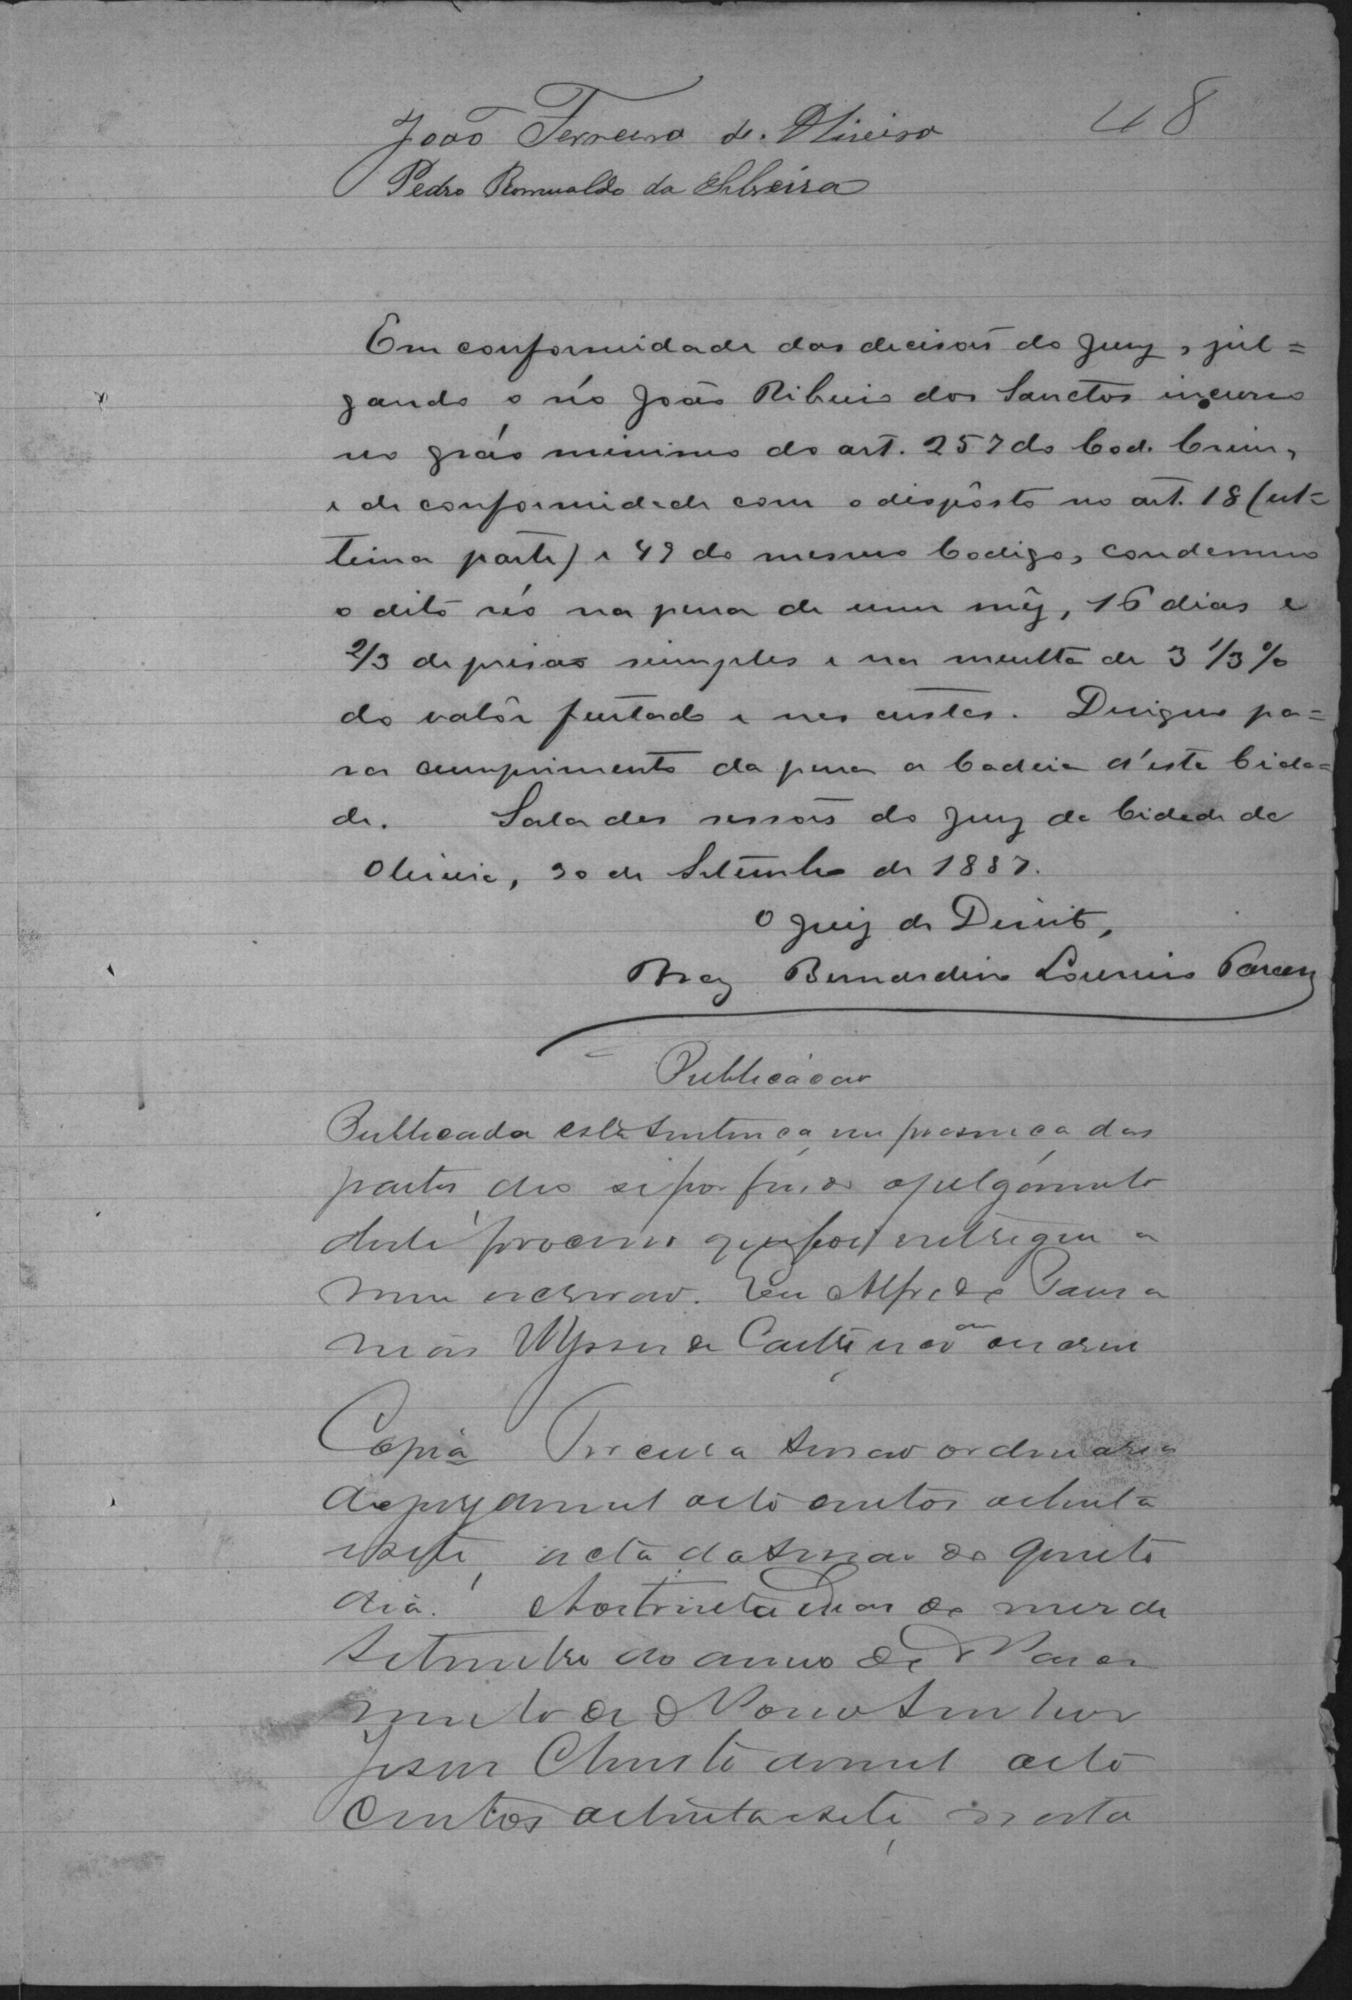 48
João Ferreira de Oliveira
Pedro Romualdo da Silveira
Em conformidade das decisoẽs do Jury, jul=
gando o réo João Ribeiro dos Sanctos incurso
no gráo minimo do art. 257 do Cod. Crim.,
e de conformidade com o dispôsto no art. 18 (ul=
tima parte) e 49 do mesmo Codigo, condemno
o dito réo na pena de um mêz, 16 dias e
2/3 de prisão simples e na multa de 3 1/3 %
do valôr furtado e nas custas. Designo pa=
ra cumprimento da pena a Cadeia d'esta Cida=
de. Sala das sessoẽs do Jury da Cidade de
Oliveira, 30 de Setembro de 1887.
O Juiz de Direito,
Braz Bernardino Loureiro
Publicação
Publicada esta sentença em presença das
partes deo se por findo o julgamento
deste processo que foi entregue a
mim escrivão. Eu Alfredo
Ulysses de Castro escrivão
Copia Terceira sessão ordinaria
do jury de mil oito centos oitenta
e sete, acta da sessão do quinto
dia. Aos trinta dias do mez de
Setembro do anno do Nasci
mento de Nosso Senhor
Jesus Christo de mil oito
centos oitenta e sete, nesta